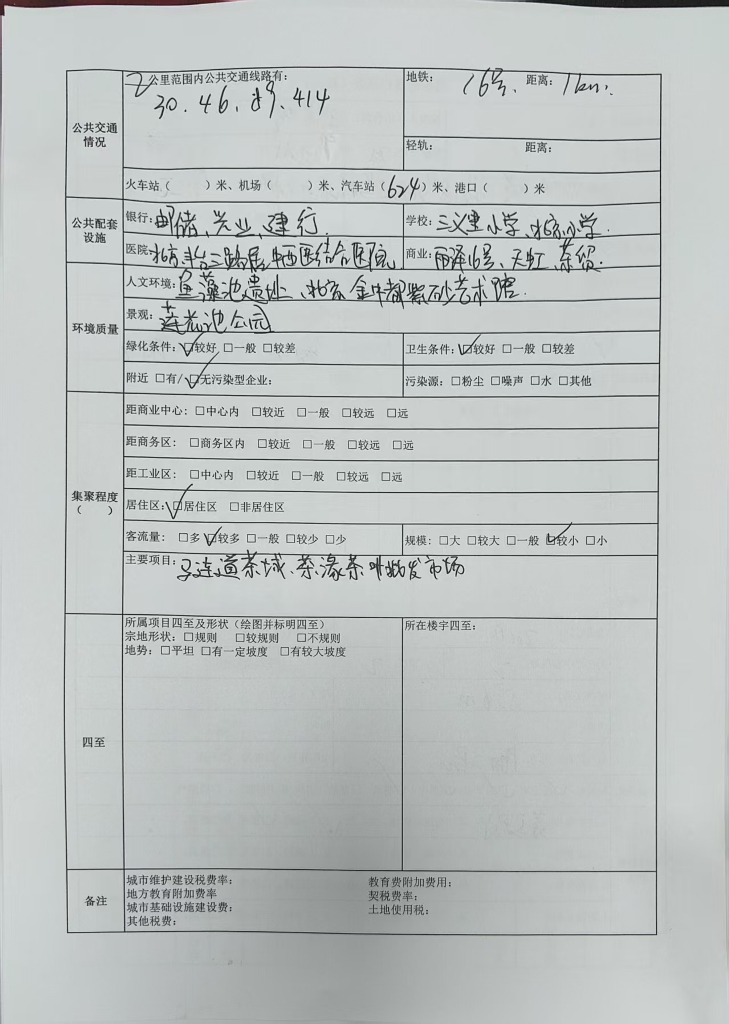 公共交通情况
2公里范围内公共交通线路有：
30、46、89、414
地铁： 16号、 距离： 1km.
轻轨： 距离：
火车站（ ）米、机场（ ）米、汽车站（624）米、港口（ ）米
公共配套设施
银行：邮储、兴业、建行
学校：三义里小学、北京小学
医院：北京丰台三路居中西医结合医院
商业：丽泽1号、天虹、茶贸
环境质量
人文环境：鱼藻池遗址、北京金中都紫砂艺术馆
景观：莲花池公园
绿化条件：☑较好 □一般 □较差
卫生条件：☑较好 □一般 □较差
附近 □有/☑无污染型企业：
污染源：□粉尘 □噪声 □水 □其他
集聚程度（ ）
距商业中心：□中心内 □较近 □一般 □较远 □远
距商务区： □商务区内 □较近 □一般 □较远 □远
距工业区： □中心内 □较近 □一般 □较远 □远
居住区：☑居住区 □非居住区
客流量： □多 ☑较多 □一般 □较少 □少
规模：□大 □较大 □一般 ☑较小 □小
主要项目：马连道茶城、茶缘茶叶批发市场
四至
所属项目四至及形状（绘图并标明四至）
宗地形状：□规则 □较规则 □不规则
地势：□平坦 □有一定坡度 □有较大坡度
所在楼宇四至：
备注
城市维护建设税费率： 教育费附加费用：
地方教育附加费率 契税费率：
城市基础设施建设费： 土地使用税：
其他税费：